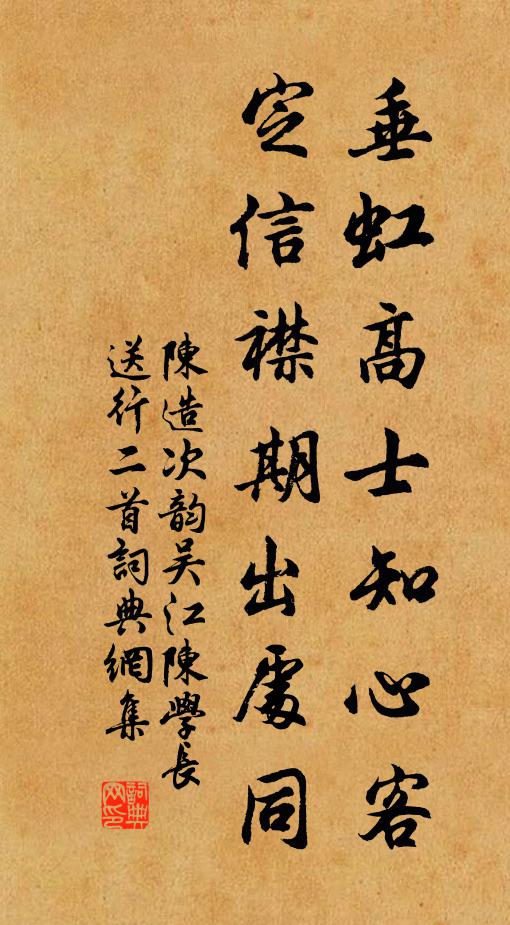 垂虹高士知心客
定信襟期出處同
陳造次韵吴江陳學長
送行二首詞典網集
詞典网印